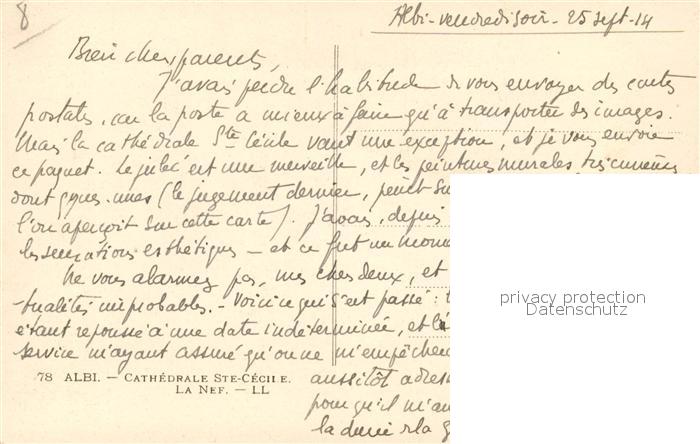 8
Albi - vendredi soir - 25 sept - 14
Bien chers parents,
J'avais perdu l'habitude de vous envoyer des cartes
postales, car la poste a mieux à faire qu'à transporter des images.
Mais la cathédrale Ste Cécile vaut une exception, et je vous envoie
ce paquet. Le jubé est une merveille, et les peintures murales très curieuses
dont qques-unes (le jugement dernier, peint su
l'on aperçoit sur cette carte). J'avais, depuis
les sensations esthétiques - et ce fut un mom
Ne vous alarmez pas, mes chers deux, et
tualités improbables. - Voici ce qui s'est passé :
étant repoussé à une date indéterminée, et le
service m'ayant assuré qu'on ne m'empêcher
aussitôt adres
pour qu'il m'au
la durée de la g
78 ALBI. — CATHÉDRALE STE-CÉCILE.
LA NEF. — LL
privacy protection
Datenschutz